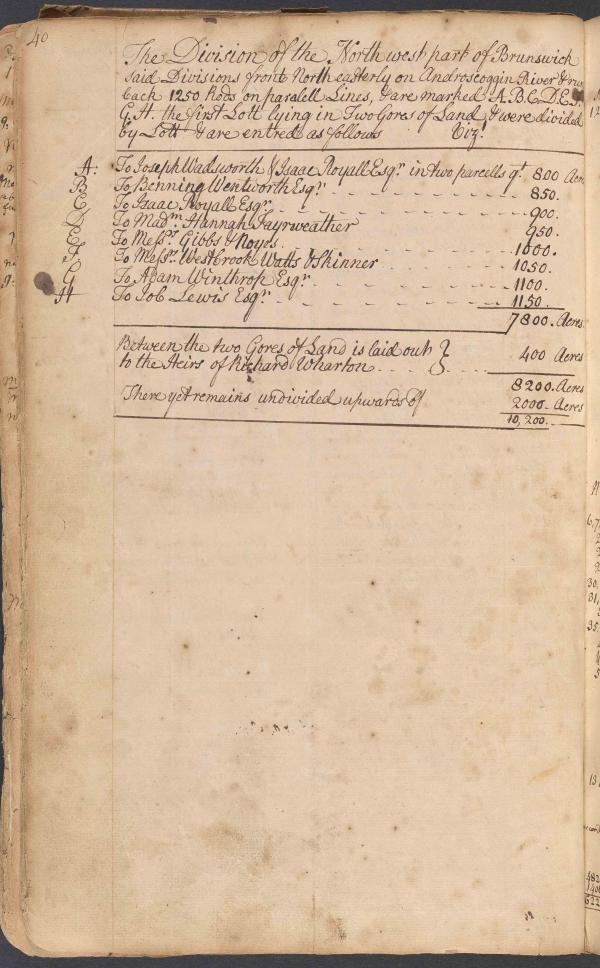 40
The Division of the North west part of Brunswich
said Divisions front North easterly on Androscoggin River & run
Each 1250 Rods on paralell Lines, & are marked A. B. C. D. E. F.
G. H. the first Lott lying in Two Gores of Land & were divided
by Lott & are entred as follows Vizt
A: To Joseph Wadsworth & Isaac Royall Esqr in two parcells qt 800 Acres
B To Benning Wentworth Esqr 850.
C To Isaac Royall Esqr 900.
D To Madm Hannah Fayrweather 950.
E To Messrs Gibbs & Noyes 1000.
F To Messrs Westbrook Watts & Skinner 1050.
G To Adam Winthrop Esqr 1100.
H To Job Lewis Esqr 1150.
7800. Acres
Between the two Gores of Land is laid out }
to the Heirs of Richard Wharton 400 Acres
8200. Acres
There yet remains undivided upwards of 2000- Acres
10,200.